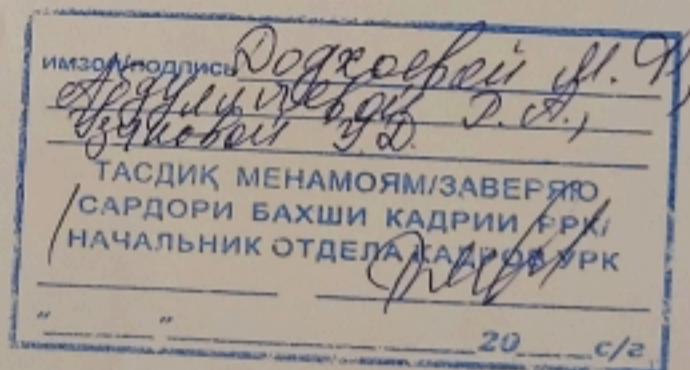 ИМЗО/ПОДПИСЬ Додхоевой М. Ф,
Р. А.,
Узяковой У. Д.
ТАСДИҚ МЕНАМОЯМ/ЗАВЕРЯЮ
САРДОРИ БАХШИ КАДРИИ РРК/
НАЧАЛЬНИК ОТДЕЛА КАДРОВ УРК
" " 20 с/г